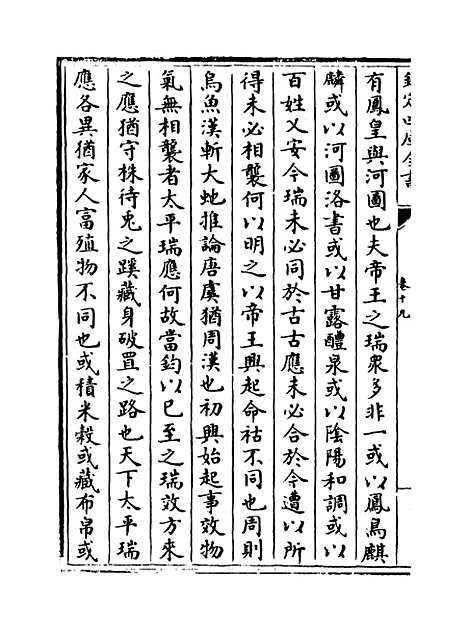 欽定四庫全書
卷十九
有鳳皇與河圖也夫帝王之瑞衆多非一或以鳳鳥麒
麟或以河圖洛書或以甘露醴泉或以陰陽和調或以
百姓乂安今瑞未必同於古古應未必合於今遭以所
得未必相襲何以明之以帝王興起命祜不同也周則
烏魚漢斬大虵推論唐虞猶周漢也初興始起事效物
氣無相襲者太平瑞應何故當鈞以已至之瑞效方來
之應猶守株待兎之蹊藏身破罝之路也天下太平瑞
應各異猶家人富殖物不同也或積米榖或藏布帛或